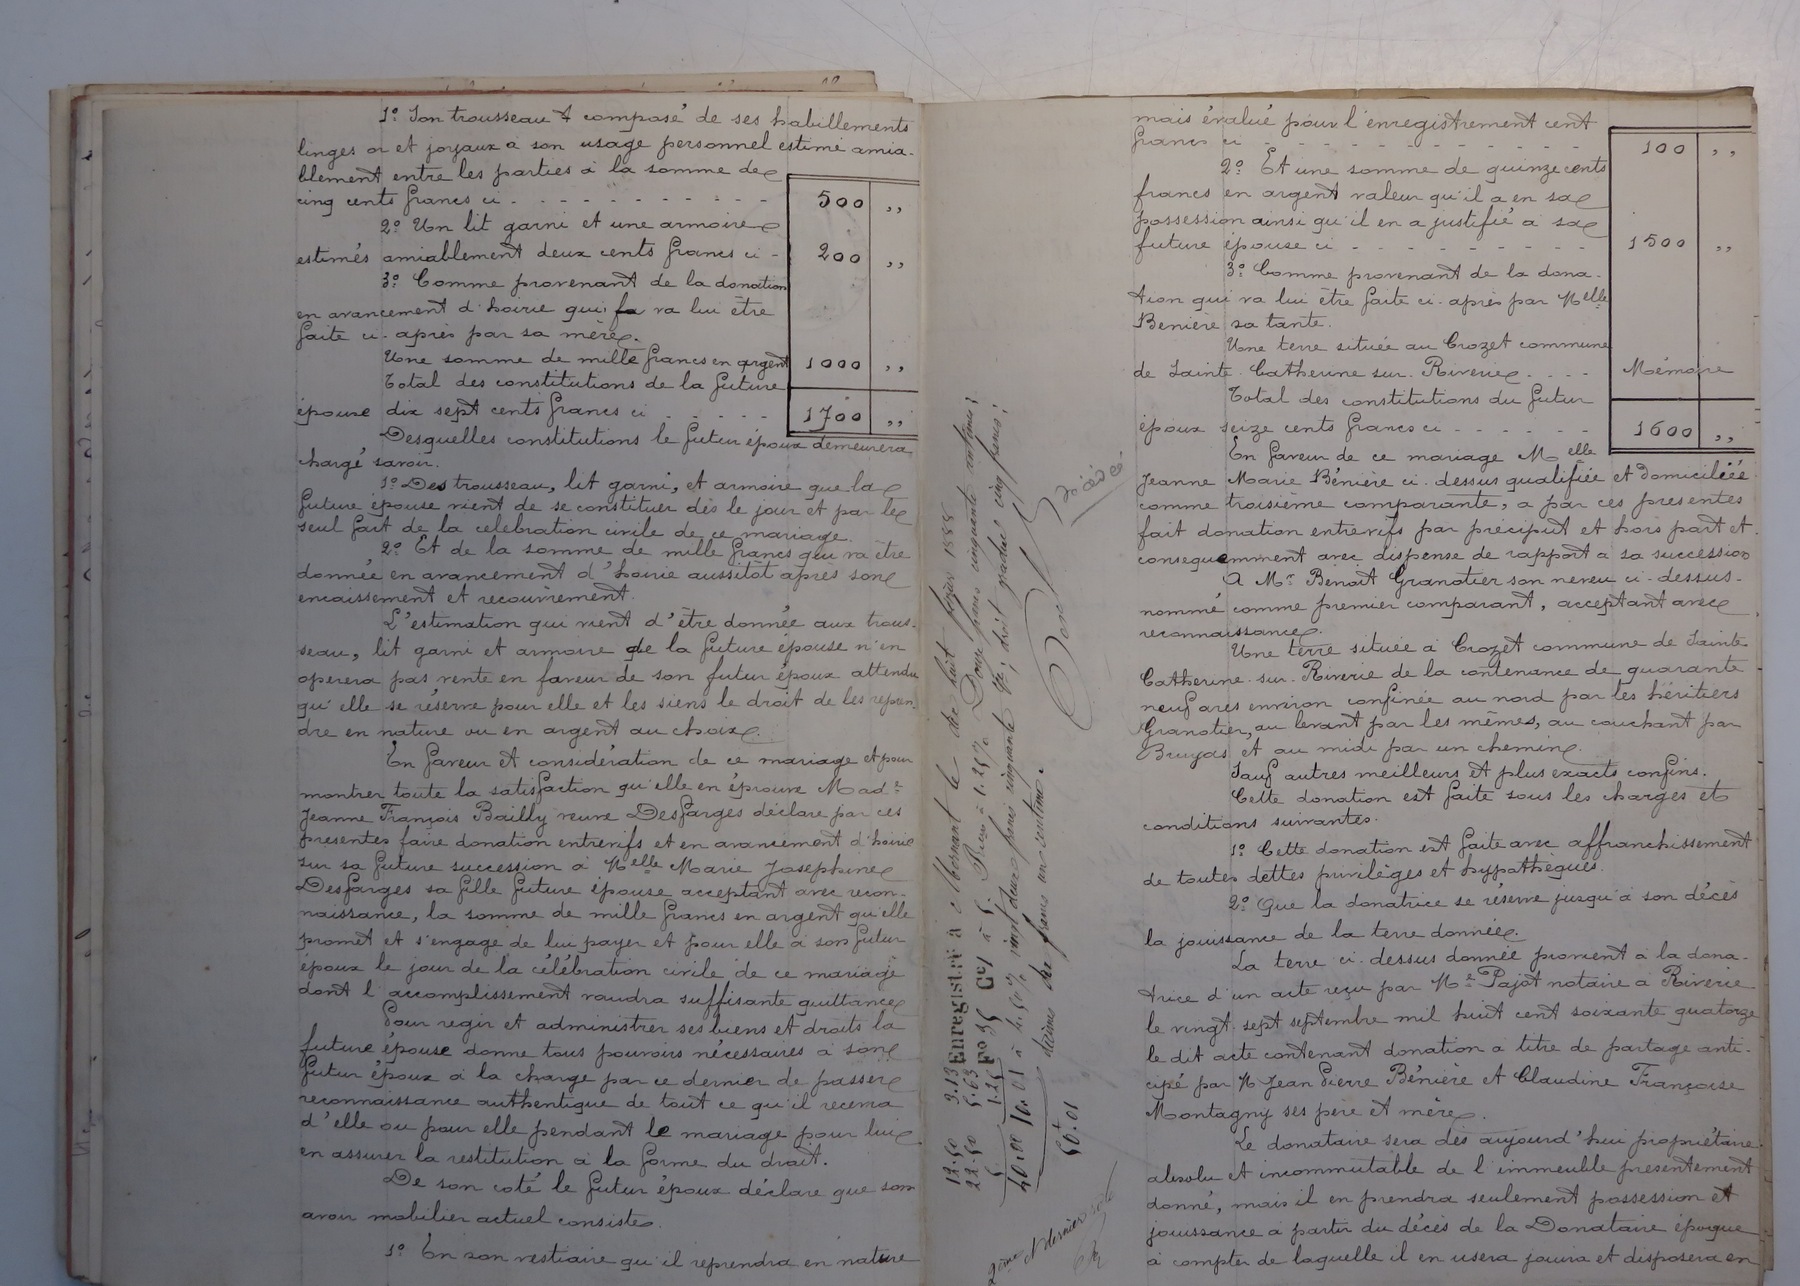 1º Son trousseau & composé de ses habillements
linges or et joyaux a son usage personnel estimé amia-
blement entre les parties à la somme de
cinq cents francs ci - - - - - - - - - - 500 ,,
2º Un lit garni et une armoire
estimés amiablement deux cents francs ci - 200 ,,
3º Comme provenant de la donation
en avancement d'hoirie qui va lui être
faite ci-après par sa mère.
Une somme de mille francs en argent 1000 ,,
Total des constitutions de la future
épouse dix sept cents francs ci - - - - - 1700 ,,
Desquelles constitutions le futur époux demeurera
chargé savoir.
1º Des trousseau, lit garni, et armoire que la
future épouse vient de se constituer dès le jour et par le
seul fait de la celebration civile de ce mariage.
2º Et de la somme de mille francs qui va être
donnée en avancement d'hoirie aussitôt après son
encaissement et recouvrement.
L'estimation qui vient d'être donnée aux trous-
seau, lit garni et armoire de la future épouse n'en
operera pas vente en faveur de son futur époux attendu
qu'elle se réserve pour elle et les siens le droit de les repren-
dre en nature ou en argent au choix.
En faveur et considération de ce mariage et pour
montrer toute la satisfaction qu'elle en éprouve Made
Jeanne François Bailly veuve Desfarges déclare par ces
presentes faire donation entrevifs et en avancement d'hoirie
sur sa future succession à Melle Marie Josephine
Desfarges sa fille future épouse acceptant avec recon-
naissance, la somme de mille francs en argent qu'elle
promet et s'engage de lui payer et pour elle à son futur
époux le jour de la célébration civile de ce mariage
dont l'accomplissement vaudra suffisante quittance
Pour regir et administrer ses biens et droits la
future épouse donne tous pouvoirs nécessaires à son
futur époux à la charge par ce dernier de passer
reconnaissance authentique de tout ce qu'il recevra
d'elle ou pour elle pendant le mariage pour lui
en assurer la restitution a la forme du droit.
De son coté le futur époux déclare que son
avoir mobilier actuel consiste.
1º En son vestiaire qu'il reprendra en nature
12.50 3.13 Enregistré à Mornant le dix huit février 1888
22.50 5.63 Fº 35 Cel à 5. Reçu à 1.25 % Douze francs cinquante centimes;
5 1.25 à % vingt deux francs cinquante ; droit gradué cinq francs;
40.00 10.01 décime dix francs un centime.
50f.01
décédée
2ème et dernier rôle
mais évalué pour l'enregistrement cent
francs ci - - - - - - - - - - 100 ,,
2º Et une somme de quinze cents
francs en argent valeur qu'il a en sa
possession ainsi qu'il en a justifié à sa
future épouse ci - - - - - - - - - 1500 ,,
3º Comme provenant de la dona-
tion qui va lui être faite ci-après par Melle
Benière sa tante.
Une terre située au Crozet commune
de Sainte-Catherine-sur-Riverie - - - - Mémoire
Total des constitutions du futur
époux seize cents francs ci - - - - - - 1600 ,,
En faveur de ce mariage Melle
Jeanne Marie Bénière ci-dessus qualifiée et domiciliée
comme troisième comparante, a par ces presentes
fait donation entrevifs par préciput et hors part et
consequemment avec dispense de rapport a sa succession
A Mr Benoît Granotier son neveu ci-dessus-
nommé comme premier comparant, acceptant avec
reconnaissance.
Une terre située à Crozet commune de Sainte-
Catherine-sur-Riverie de la contenance de quarante
neuf ares environ confinée au nord par les héritiers
Granotier, au levant par les mêmes, au couchant par
Bruyas et au midi par un chemin.
Sauf autres meilleurs et plus exacts confins.
Cette donation est faite sous les charges et
conditions suivantes.
1º Cette donation est faite avec affranchissement
de toutes dettes privilèges et hypothèques.
2º Que la donatrice se réserve jusqu'à son décès
la jouissance de la terre donnée.
La terre ci-dessus donnée provient à la dona-
trice d'un acte reçu par Me Pajot notaire à Riverie
le vingt-sept septembre mil huit cent soixante quatorze
le dit acte contenant donation a titre de partage anti-
cipé par M Jean Pierre Bénière et Claudine Françoise
Montagny ses père et mère.
Le donataire sera dès aujourd'hui propriétaire
absolu et incommutable de l'immeuble présentement
donné, mais il en prendra seulement possession et
jouissance à partir du décès de la Donataire époque
à compter de laquelle il en usera jouira et disposera en